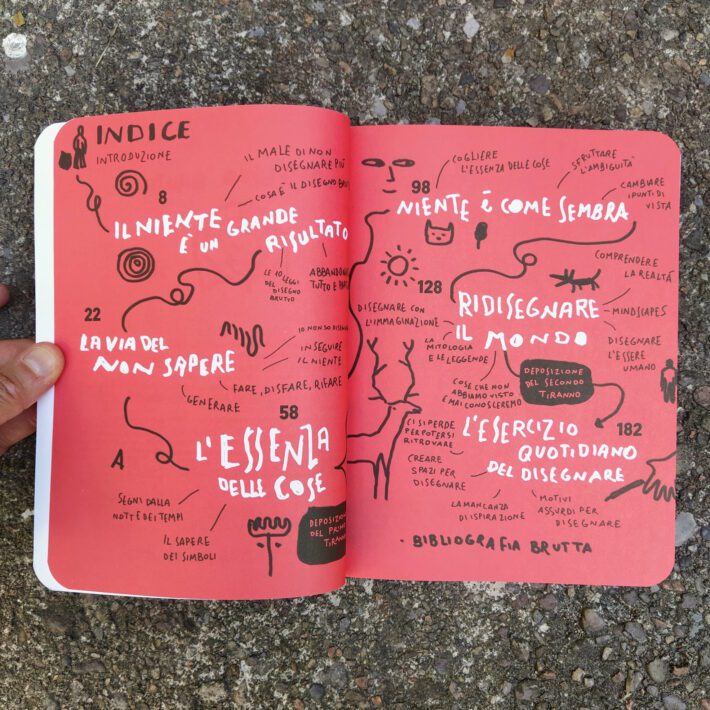 INDICE
INTRODUZIONE
8
IL MALE DI NON
DISEGNARE PIÙ
COSA È IL DISEGNO
IL NIENTE
È UN GRANDE
RISULTATO
LE 10 LEGGI
DEL
DISEGNO
BRUTTO
TUTTO E
22
LA VIA DEL
NON SAPERE
IO NON SO
INSEGUIRE
IL NIENTE
FARE, DISFARE, RIFARE
GENERARE
58
L'ESSENZA
DELLE COSE
A
SEGNI DALLA
NOTTE DEI TEMPI
IL SAPERE
DEI SIMBOLI
DEPOSIZIONE
DEL PRIMO
TIRANNO
98
COGLIERE
L'ESSENZA DELLE COSE
SFRUTTARE
L'AMBIGUITÀ
CAMBIARE
I PUNTI DI
VISTA
NIENTE È COME SEMBRA
128
COMPRENDERE
LA REALTÁ
RIDISEGNARE
IL MONDO
MINDSCAPES
DISEGNARE CON
L'IMMAGINAZIONE
LA
MITOLOGIA
E LE LEGGENDE
DISEGNARE
L'ESSERE
UMANO
COSE CHE NON
ABBIAMO VISTO
E MAI CONOSCEREMO
DEPOSIZIONE
DEL SECONDO
TIRANNO
182
L'ESERCIZIO
QUOTIDIANO
DEL DISEGNARE
CI SI PERDE
PER POTERSI
RITROVARE
CREARE
SPAZI PER
DISEGNARE
LA MANCANZA
DI ISPIRAZIONE
MOTIVI
ASSURDI PER
DISEGNARE
· BIBLIOGRAFIA BRUTTA